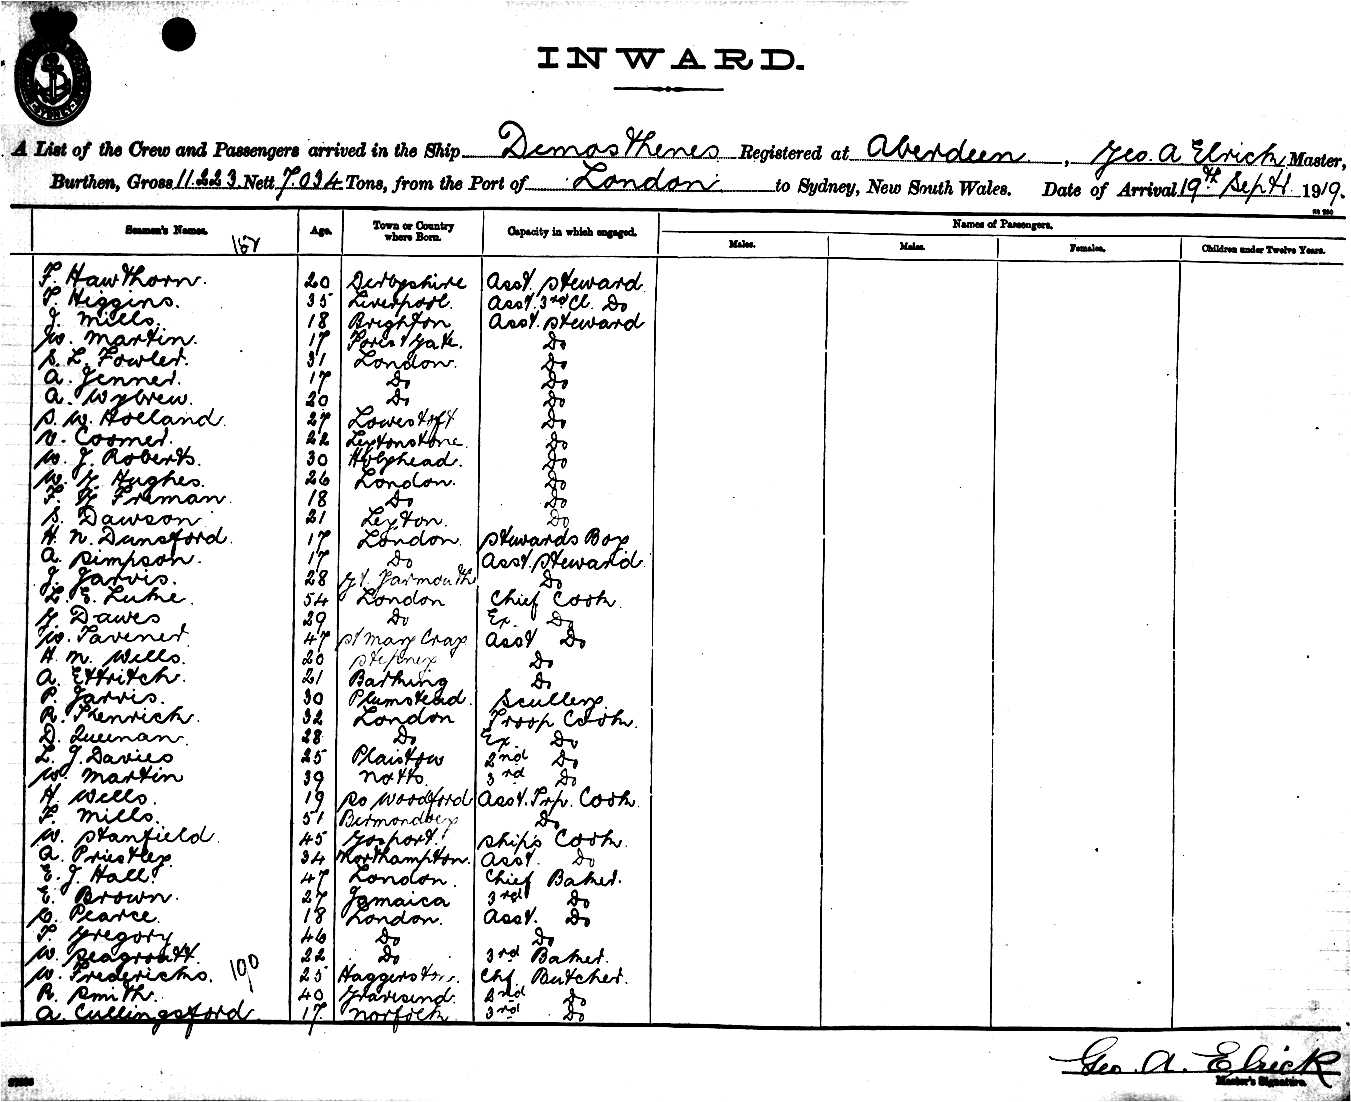 SYDNEY
INWARD.
A List of the Crew and Passengers arrived in the Ship Demosthenes Registered at Aberdeen, Geo. A Elrick Master,
Burthen, Gross 11.223 Nett 7.034 Tons, from the Port of London to Sydney, New South Wales. Date of Arrival 19th Sept 1919.
Seamen's Names. Age. Town or Country where Born. Capacity in which engaged. Names of Passengers.
Males. Males. Females. Children under Twelve Years.
F. Hawthorn. 20 Derbyshire Asst. Steward
T. Higgins. 35 Liverpool. Asst. 3rd Cl. Do
J. Mills. 18 Brighton Asst. Steward
W. Martin. 17 Forest Gate. Do
S. L. Fowler. 31 London. Do
A. Jenner. 17 Do Do
A. Wybrew. 20 Do Do
S. W. Holland. 27 Lowestoft Do
V. Coomer. 22 Leytonstone. Do
W. J. Roberts. 30 Holyhead. Do
W. G. Hughes. 26 London. Do
F. G. Freman. 18 Do Do
S. Dawson 21 Leyton. Do
H. N. Dunsford. 17 London. Stewards Boy
A. Simpson. 17 Do Asst. Steward
J. Jarvis. 28 Gt. Yarmouth Do
L. E. Luke. 54 London Chief Cook.
G. Dawes 29 Do Ex. Do
W. Tavener. 47 St Mary Cray Asst Do
H. M. Wills. 20 Stepney Do
A. Ettritch. 21 Barking Do
P. Jarvis. 30 Plumstead. Scullery.
R. Thenrick. 32 London Troop Cook.
D. Queenan. 28 Do Ex. Do
L. J. Davies 25 Plaistow 2nd Do
W. Martin 39 Notts. 3rd Do
H. Wells. 19 So Woodford Asst. Trp. Cook.
F. Mills. 51 Bermondsey Do
W. Stanfield. 45 Gosport. Ship's Cook.
A. Priestley. 34 Northampton. Asst. Do
E. J. Hall. 47 London. Chief Baker.
E. Brown. 27 Jamaica 3rd Do
C. Pearce. 18 London. Asst. Do
T. Gregory 46 Do Do
W. Seagroatt. 22 Do 3rd Baker.
W. Fredericks. 25 Haggerston. Chf. Butcher.
R. Smith. 40 Gravesend. 2nd Do
A. Cullingsford. 17. Norfolk. 3rd Do
190
Geo. A. Elrick
Master's Signature.